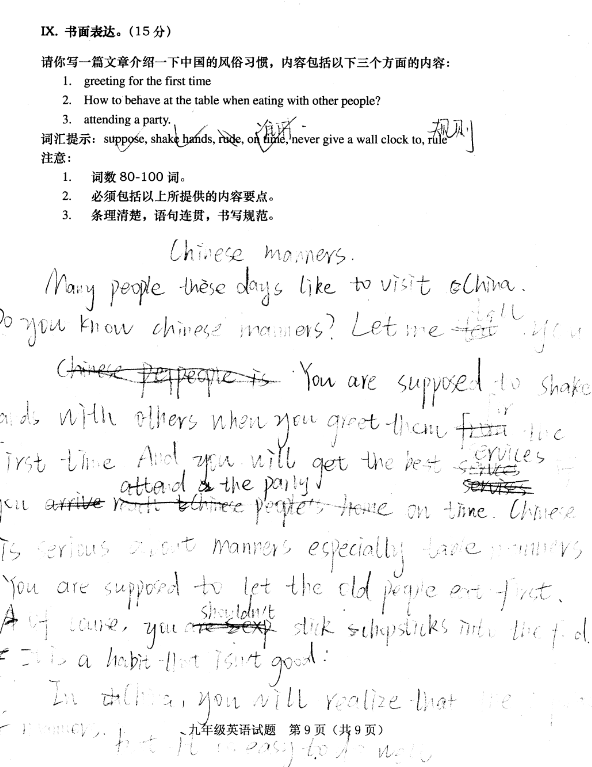 IX. 书面表达。(15 分)
请你写一篇文章介绍一下中国的风俗习惯，内容包括以下三个方面的内容：
1. greeting for the first time
2. How to behave at the table when eating with other people?
3. attending a party.
准时 规则
词汇提示：suppose, shake hands, rude, on time, never give a wall clock to, rule
注意：
1. 词数 80-100 词。
2. 必须包括以上所提供的内容要点。
3. 条理清楚，语句连贯，书写规范。
Chinese manners.
Many people these days like to visit China.
Do you know chinese manners? Let me tell you
Chinese You are supposed to shake
ands with others when you greet them for the
irst time And you will get the best services
attend the party
you arrive Chinese people's home on time. Chinese
is serious about manners especially table manners
You are supposed to let the old people eat first.
shouldn't
of course, you stick chopsticks into the food
It is a habit that isn't good.
In China, you will realize that
manners.
but it is easy to do
九年级英语试题 第 9 页（共 9 页）